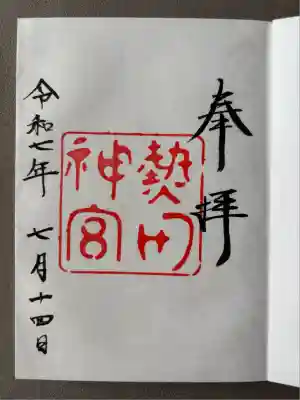 奉拝
熱田
神宮
令和七年 七月十四日